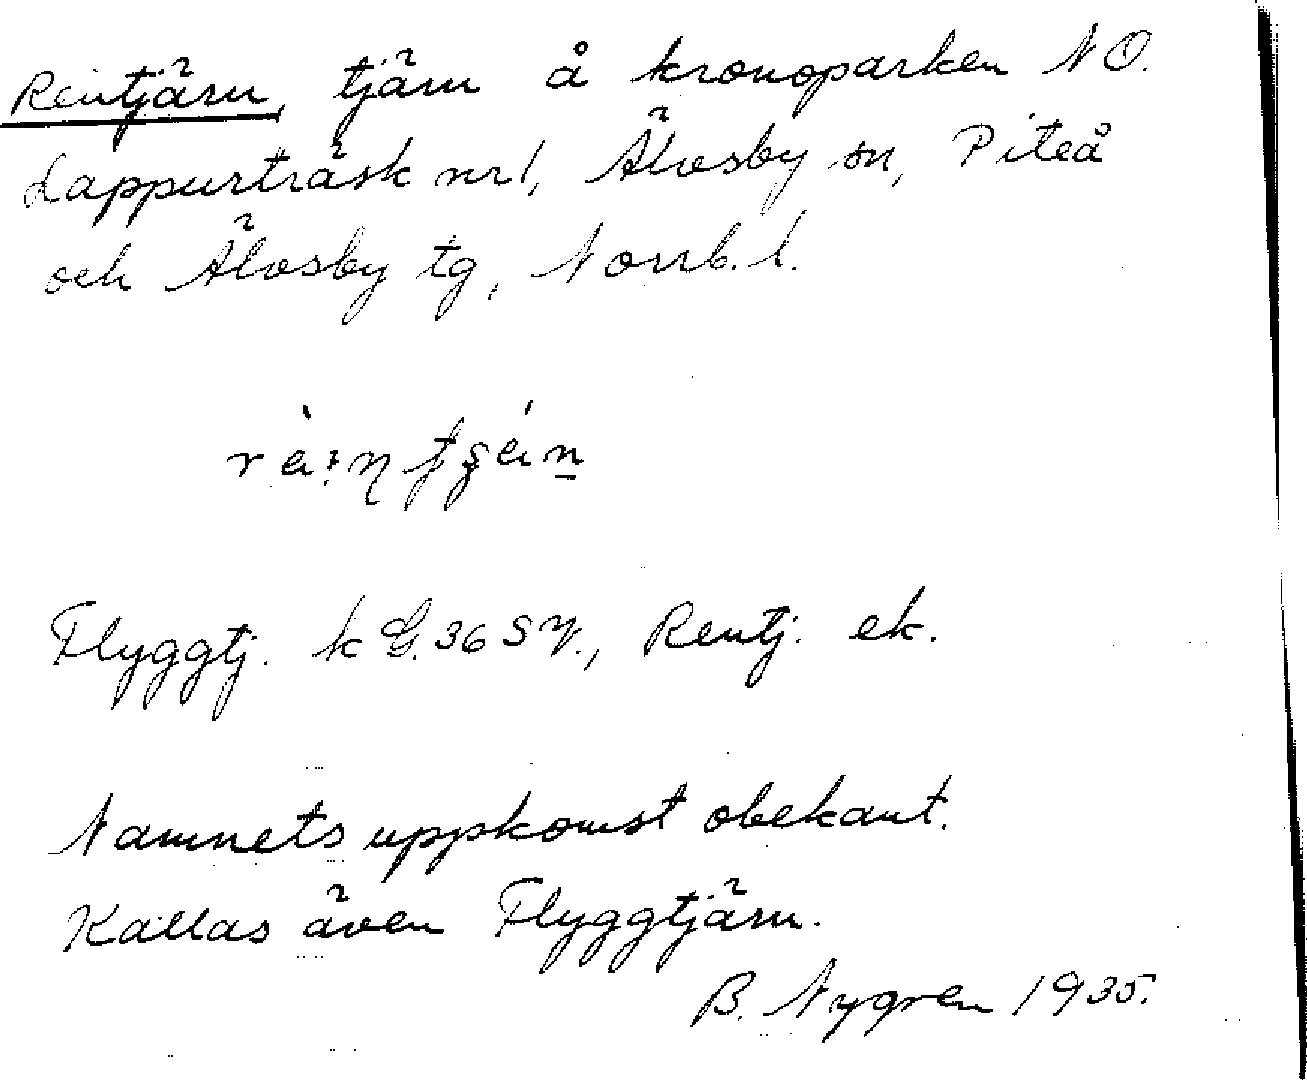 Rentjärn, tjärn å kronoparken NO.
Lappurträsk nr 1, Älvsby sn, Piteå
och Älvsby tg, Norrb. l.
Flyggtj. k G. 36 SV., Rentj. ek.
Namnets uppkomst obekant.
Kallas även Flyggtjärn.
B. Nygren 1935.